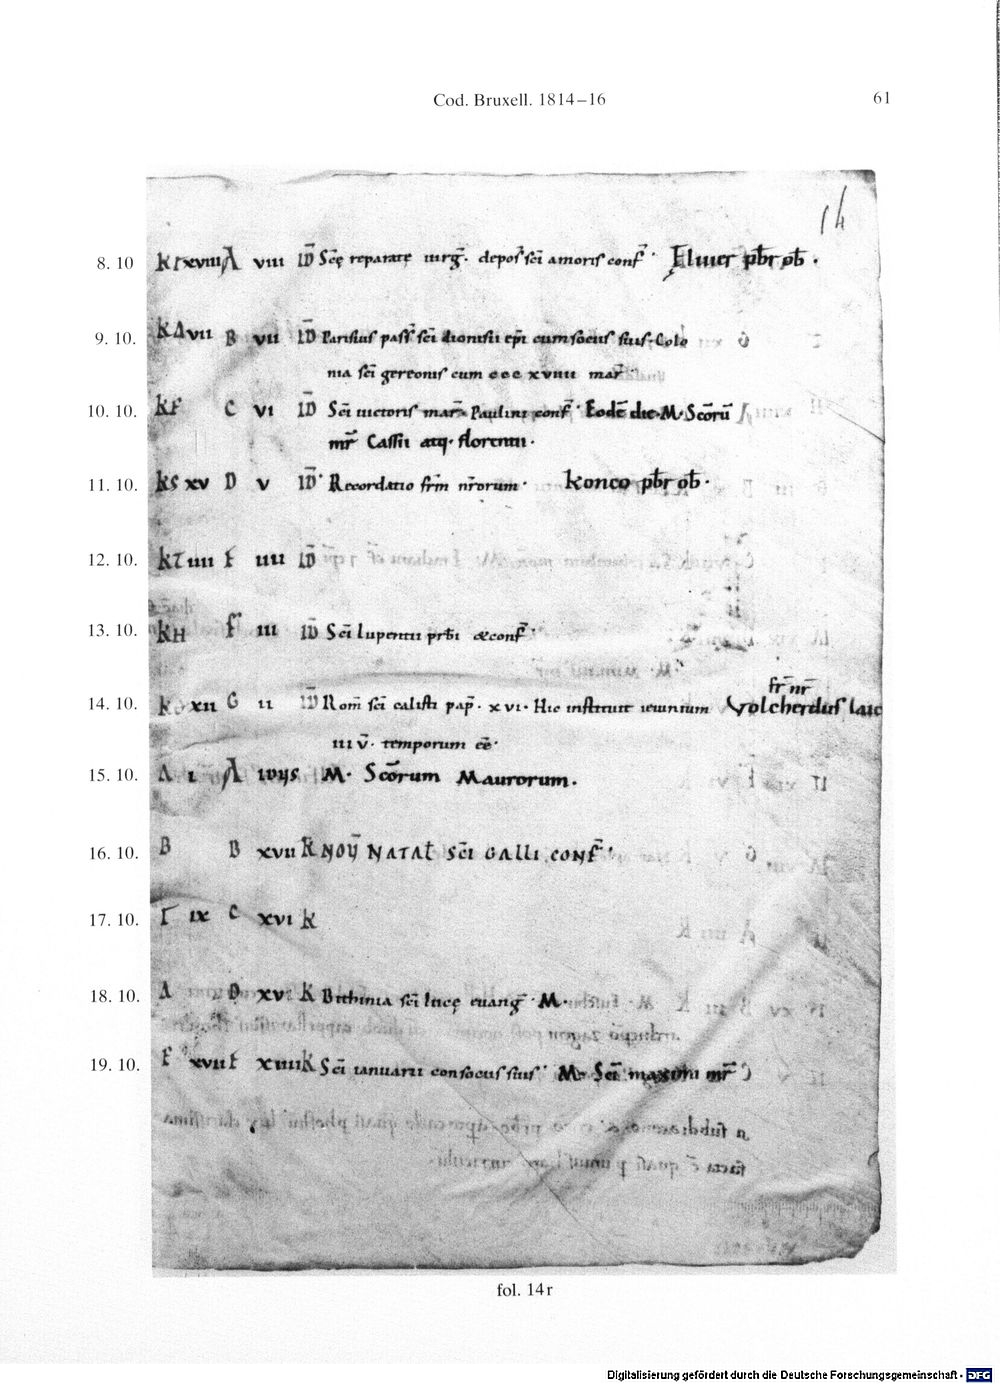 Cod. Bruxell. 1814–16 61
14
8. 10 kr xviii A viii ID Scē reparatę uirg̅. depos̅ sc̅i amoris conf̅. Eluuer pb̅r ob̅.
9. 10. kΔ vii B vii ID Parisius pass̅ sc̅i dionisii ep̅i cum sociis suis. Colo
nia sc̅i gereonis cum ccc xviiii mar̅.
10. 10. kF C vi ID Sc̅i uictoris mar̅. Paulini conf̅. Eode̅ die. M. Sc̅oru̅
mr̅ Cassii atq. florentii.
11. 10. kS xv D v ID Recordatio fr̅m nr̅orum. konco pb̅r ob̅.
12. 10. kT iiii E iiii ID
13. 10. kH F iii ID Sc̅i lupentii prb̅i &conf̅.
fr̅ nr̅
14. 10. k xii G ii ID Rom̅ sc̅i calisti pap̅. xvi. Hic instituit ieiunium Volcherdus laic
iii v̅. temporum ee̅.
15. 10. A i A idus M. Sc̅orum Maurorum.
16. 10. B B xvii K NOV̅ NATAL̅ SC̅I GALLI CONF̅.
17. 10. Γ ix C xvi K
18. 10. Δ D xv K Bithinia sc̅i lucę euang̅. M.
19. 10. E xvii E xiiii K Sc̅i ianuarii con sociis suis. M. Sc̅i maximi mr̅
fol. 14r
Digitalisierung gefördert durch die Deutsche Forschungsgemeinschaft - DFG